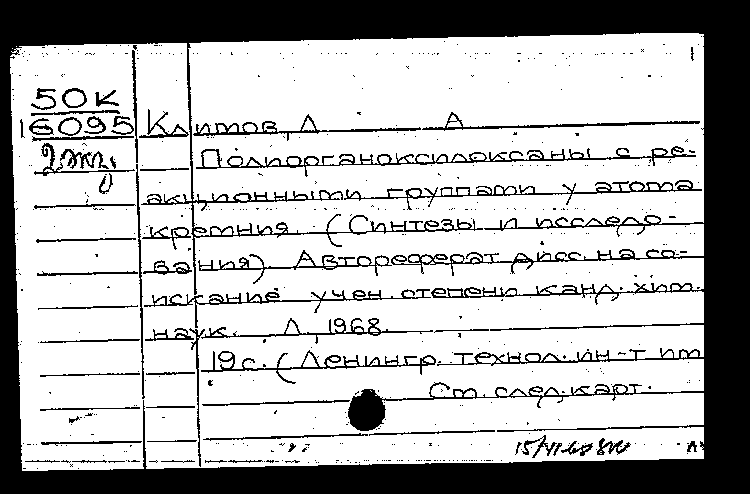 50К
16095 Климов, Л А
2 экз. Полиорганоксилоксаны с ре-
акционными группами у атома
кремния. (Синтезы и исследо-
вания) Автореферат дисс. на со-
искание учен. степени канд. хим.
наук. Л., 1968.
19 с. (Ленингр. технол. ин-т им
См. след. карт.